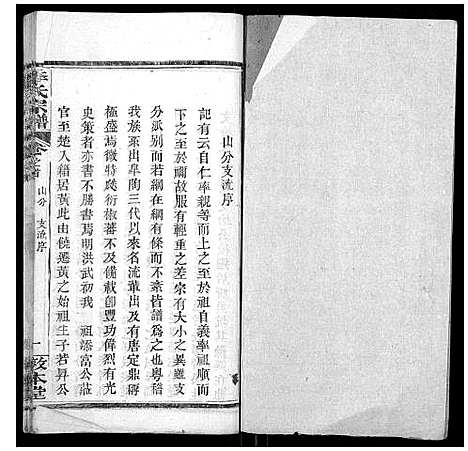 山分支流序
記有云自仁率親等而上之至於祖自義率祖順而
下之至於禰故服有輕重之差宗有大小之異雖支
分派別而若網在綱有條而不紊皆譜為之也粵稽
我族系出皋陶三代以來名流輩出及有唐定鼎稱
極盛焉微特瓞衍椒蕃不及備載卽豐功偉烈有光
史策者亦書不勝書焉明洪武初我 祖添富公莊
官至楚入籍居黃此由饒遷黃之始祖生子若昇公
李氏宗譜
卷之首
山分 支流序
一
敦本堂